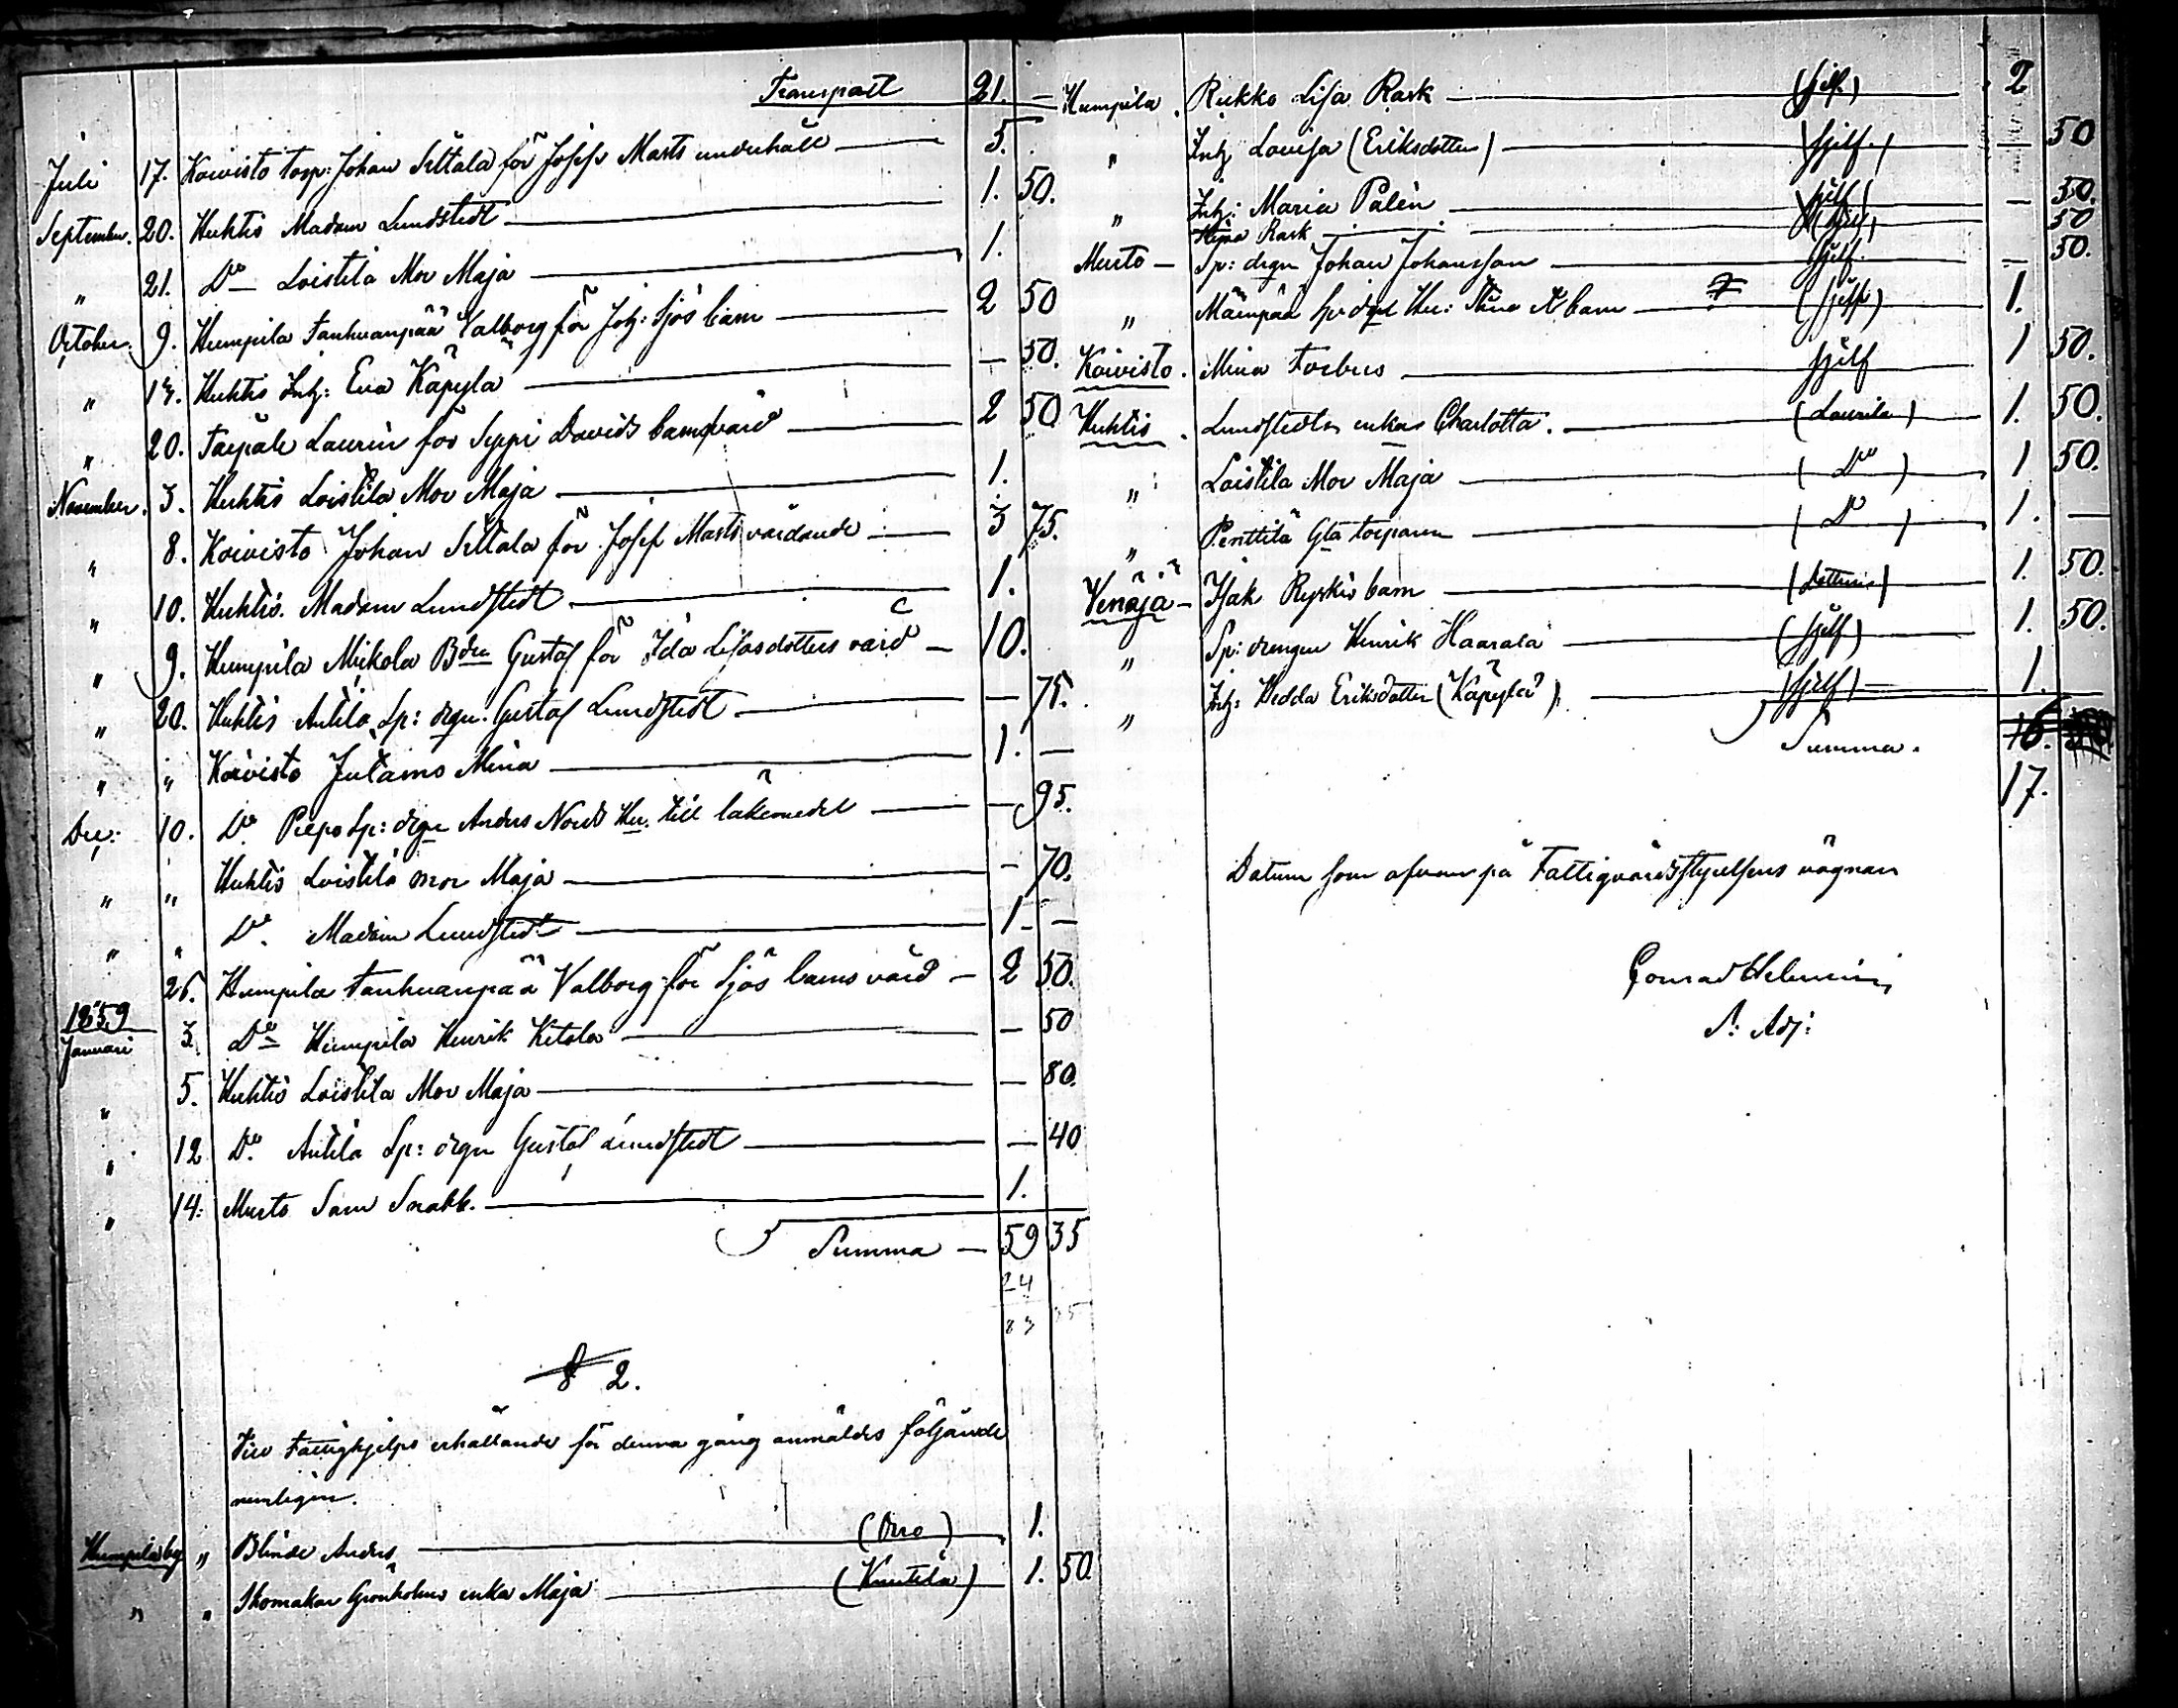 Transport 21. —
Juli 17. Koivisto torp: Johan Sillala för Josef Masts underhåll — 5.
September. 20. Huhtis Madam Lundstedt — 1. 50.
" 21. Do Loistila Mor Maja — 1.
October. 9. Humpila Tanhuanpää Valborg för Joh: Sjös barn — 2 50
" Huhtis Inh: Eva Käpylä — — 50.
" 20. Taipale Laurin för Seppi Davids barns vård — 2 50
November. 3. Huhtis Loistila Mor Maja — 1.
" 8. Koivisto Johan Sillala för Josef Masts vårdande — 3 75.
" 10. Huhtis. Madam Lundstedt — 1.
" 9. Humpila Mikola Bdn Gustaf för Ida Lisasdotters vård — 10.
" 20. Huhtis Antila Sp: drgn. Gustaf Lundstedt — — 75.
" " Koivisto Mina — 1. —
Dec: 10. Do Sp: drgn Anders Hu: till läkemedel — — 95.
" " Huhtis Loistila mor Maja — — 70.
" " Do. Madam Lundstedt — 1. —
26. Humpila Tanhuanpää Valborg för Sjös barns vård — 2 50.
1859
Januari 3. Do Humpila Henrik Ketola — — 50
" 5. Huhtis Loistila Mor Maja — — 80.
" 12 Do. Antila Sp: drgn Gustaf Lundstedt — — 40
" 14. Murto Sam Snabb. — 1.
Summa — 59 35
24
83 35
§ 2.
Till Fattighjelps erhållande för denna gång anmäldes följande
nemligen.
Humpila by " Blinde Anders — (Orro) 1.
" " Skomakar Grönholms enka Maja — (Kuutila) 1. 50.
Humpila. Rukko Lisa Rask — (sjelf.) 2
" Inh Lovisa (Eriksdotter) — (sjelf.) — 50
" Inh: Maria Palèn — sjelf — 50.
Rask — 50
Murto — Sp: drgn Johan Johansson — sjelf. — 50.
" Mäenpää Hu: Stina barn — (sjelf) 1.
Koivisto. Mina Forbus — sjelf 1 50.
Huhtis. Lundstedts enka Charlotta. — (Laurila) 1. 50.
" Loistila Mor Maja — (Do) 1 50.
" Penttilä Gla torparen — (Do) 1. —
Venäjä — Isak barn — 1. 50.
" Sp: drengen Henrik Haarala — (sjelf) 1. 50.
" Inh: Hedda Eriksdotter (Käpylä) — (sjelf) — 1.
Summa. 16.
17.
Datum som ofvan på Fattigvårdsstyrelsens vägnar
Conrad Helenius
S: Adj: